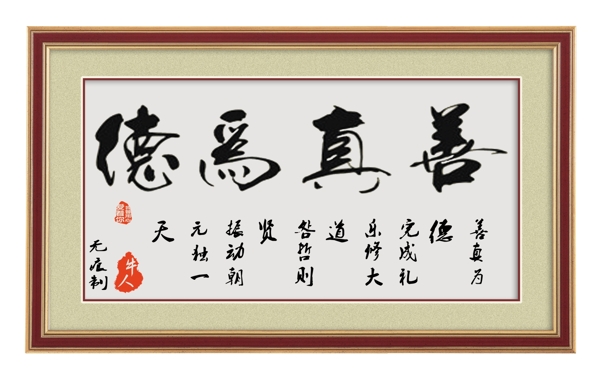 善真為德
善真为
德
完成礼
乐修大
道
咎哲则
贤
振动朝
元独一
天
无痕制
牛人